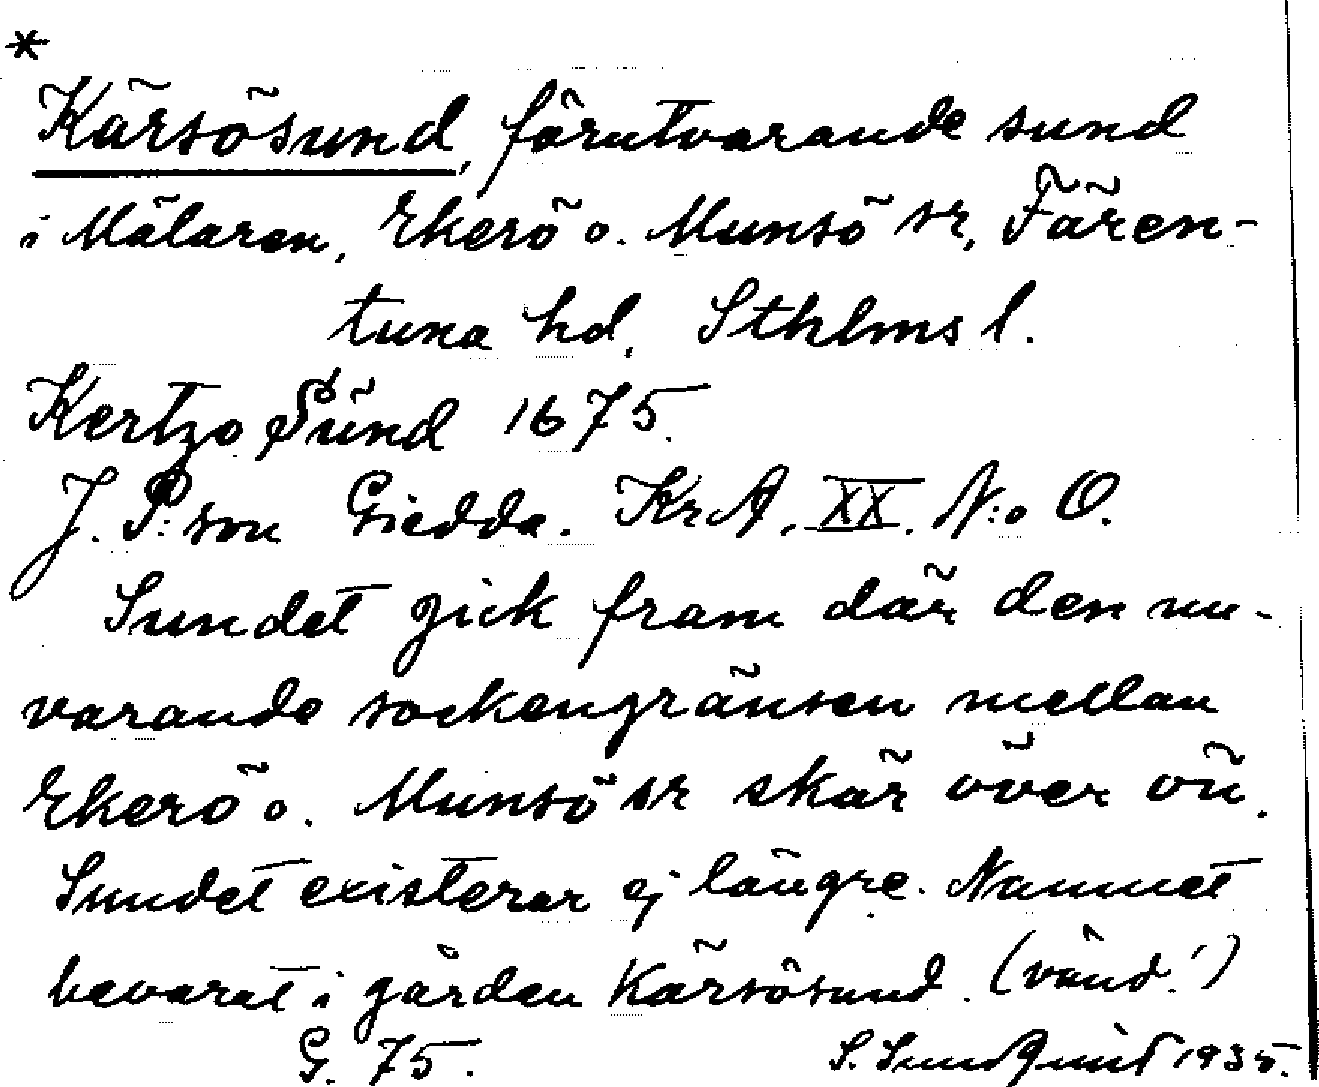 *
Kärsösund, förutvarande sund
i Mälaren, Ekerö o. Munsö sr, Fären-
tuna hd, Sthlms l.
Kertzo Sund 1675.
J. P:son Giedda. KrA. XX. N:o O.
Sundet gick fram där den nu-
varande sockengränsen mellan
Ekerö o. Munsö sr skär över ön.
Sundet existerar ej längre. Namnet
bevarat i gården Kärsösund. (vänd!)
G. 75.
S. Sundquist 1935.